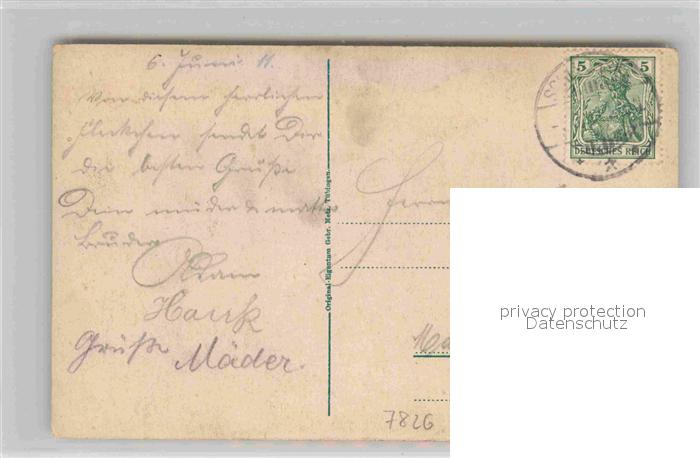 6. Juni 11.
Von diesem herrlichen
Fleckchen sendet Dir
die besten Grüße
Dein müder & matter
Bruder
Adam
Hauk
Grüße Mäder.
Original-Eigentum Gebr. Metz, Tübingen
Herrn
5 5
DEUTSCHES REICH
privacy protection
Datenschutz
7826